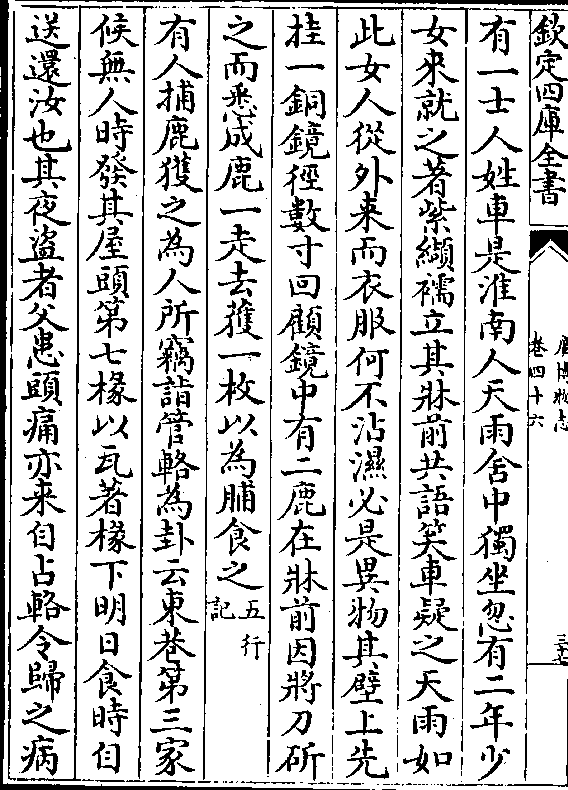 欽定四庫全書
廣博物志
卷四十六
三十七
有一士人姓車是淮南人天雨舍中獨坐忽有二年少
女來就之著紫纈襦立其牀前共語笑車疑之天雨如
此女人從外來而衣服何不沾濕必是異物其壁上先
挂一銅鏡徑數寸回顧鏡中有二鹿在牀前因將刀斫
之而悉成鹿一走去獲一枚以為脯食之五行記
有人捕鹿獲之為人所竊詣管輅為卦云東巷第三家
候無人時發其屋頭第七椽以瓦著椽下明日食時自
送還汝也其夜盜者父患頭痛亦来自占輅令歸之病